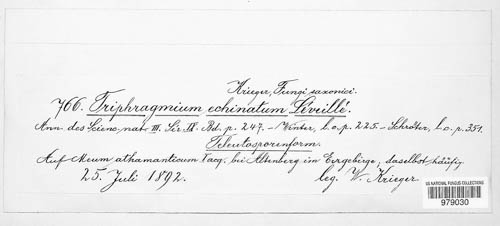 Krieger, Fungi saxonici.
766. Triphragmium echinatum Léveillé.
Ann. des Scienc. nat. III. Sér. IX. Bd. p. 247. – Winter, l. c. p. 225. – Schröter, l. c. p. 351.
Teleutosporenform.
Auf Meum athamanticum Jacq. bei Altenberg im Erzgebirge, daselbst häufig.
25. Juli 1892. leg. W. Krieger
US NATIONAL FUNGUS COLLECTIONS
979030